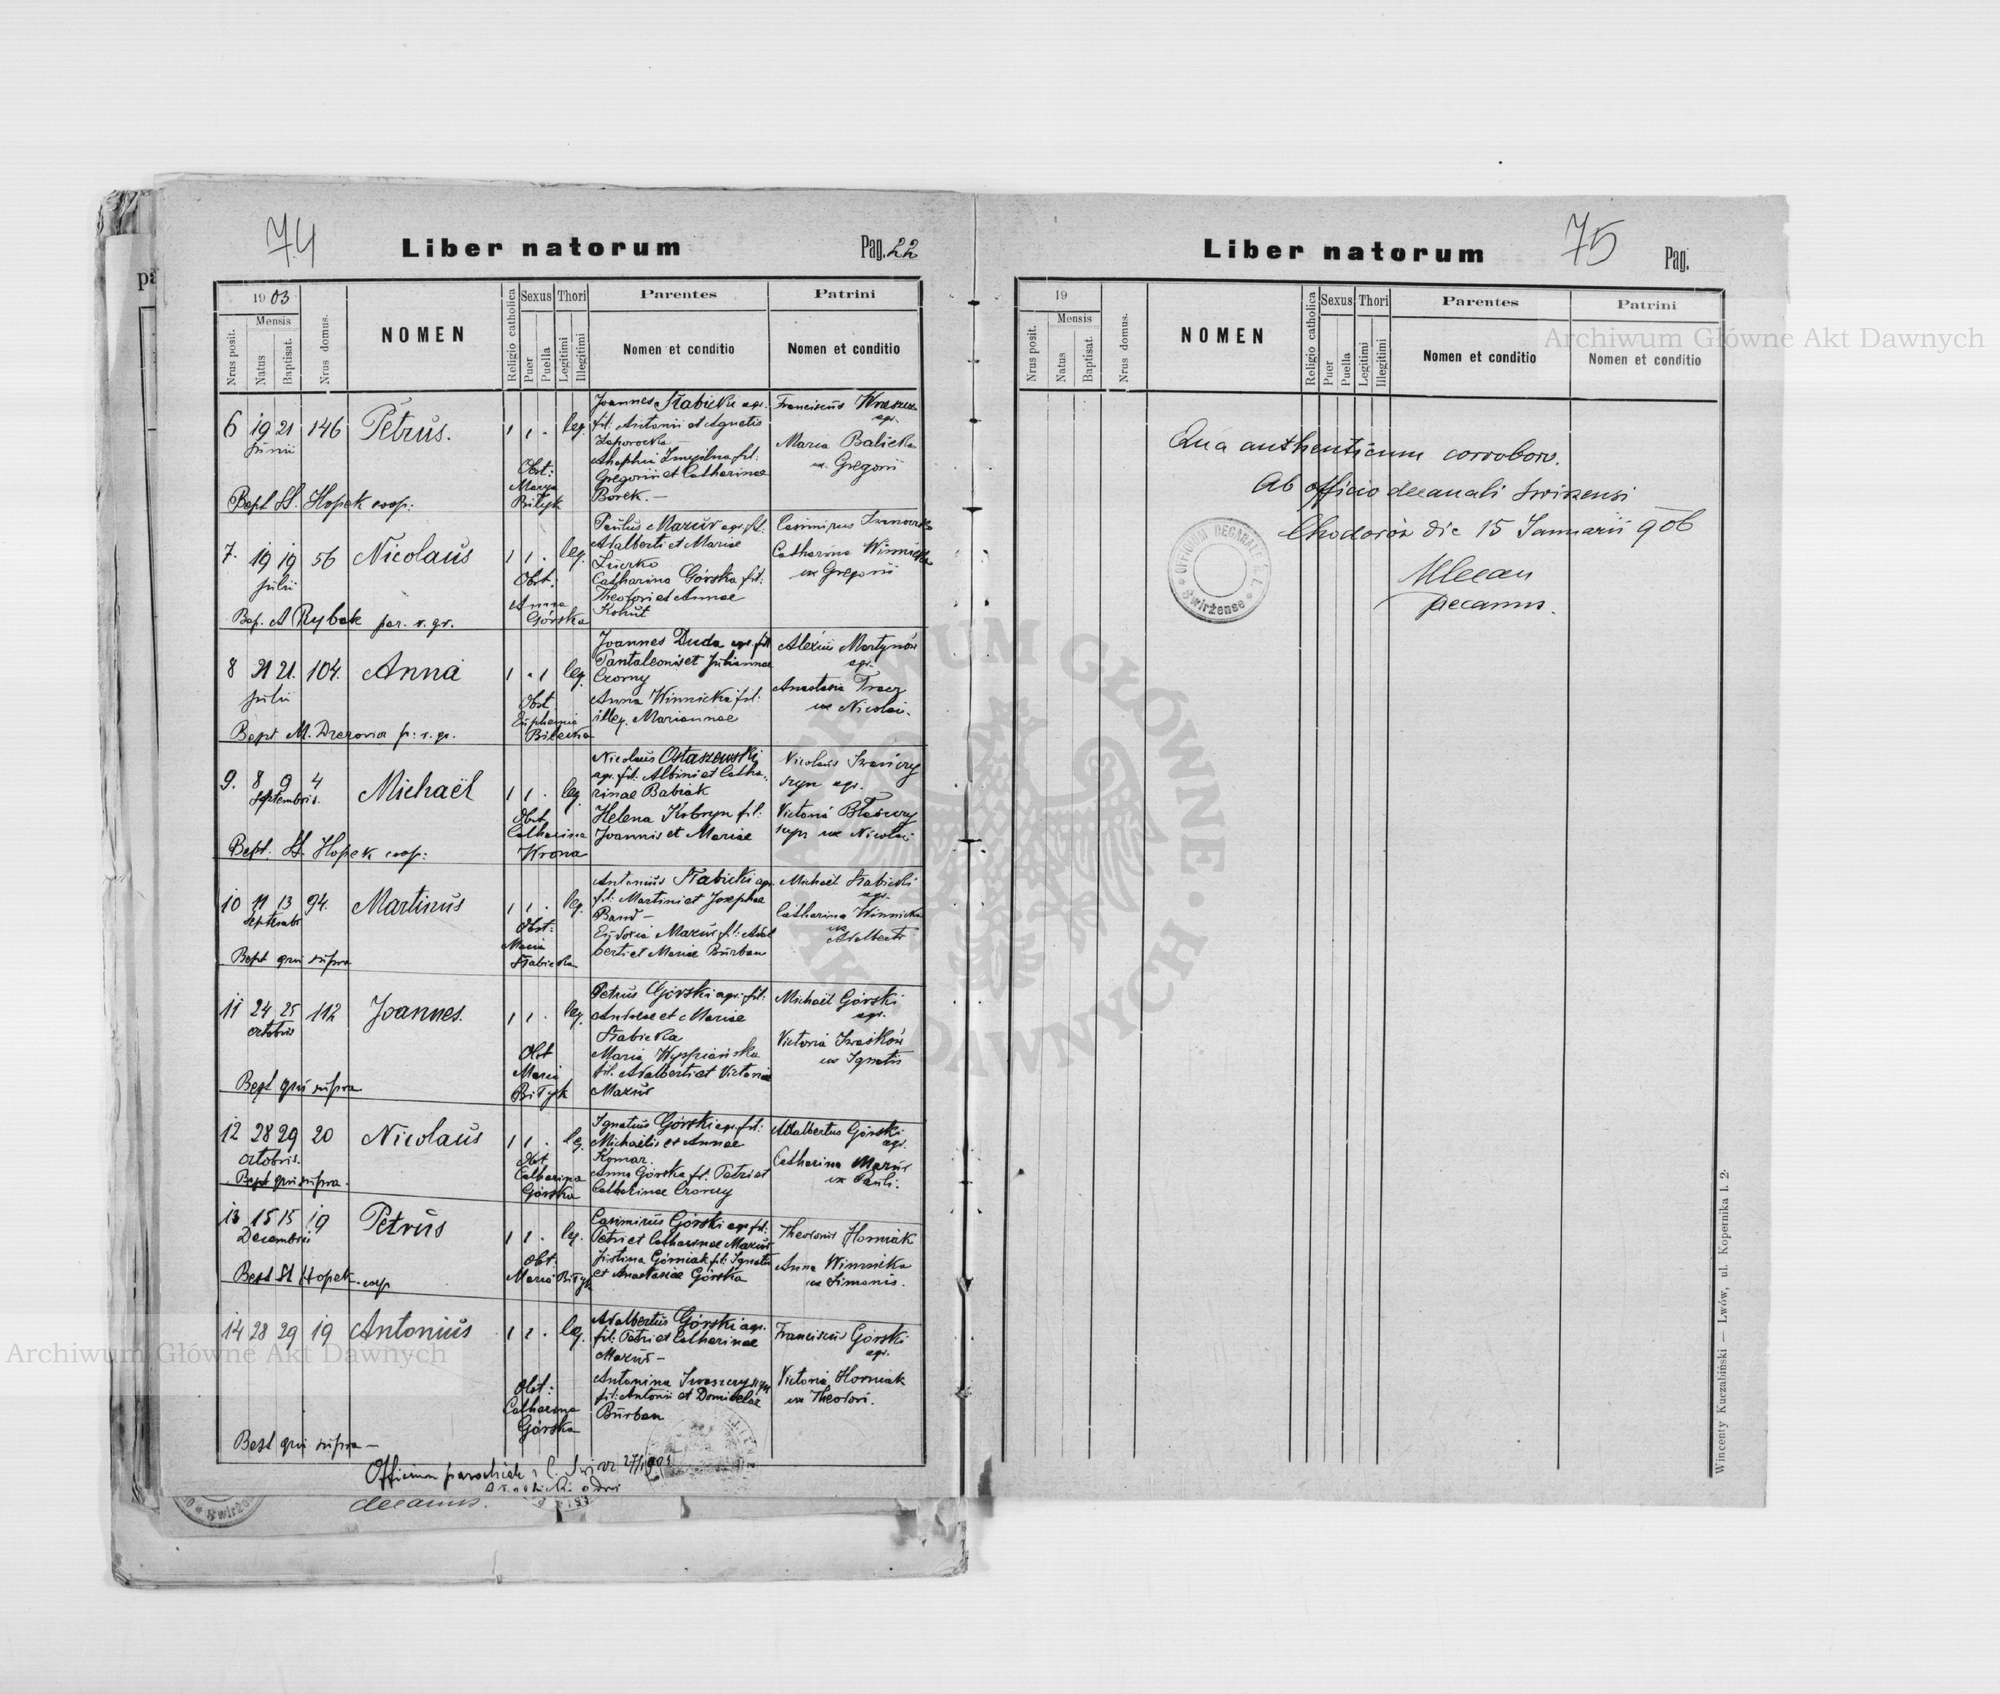 74
Liber natorum
Pag. 22
1903
Mensis
Nrus posit.
Natus
Baptisat.
Nrus domus.
NOMEN
Religio catholica
Sexus
Puer
Puella
Thori
Legitimi
Illegitimi
Parentes
Nomen et conditio
Patrini
Nomen et conditio
6 19 21 146 Petrus. 1 1 . leg.
Junii
Joannes Stabicki agr.
fil. Antonii et Agnetis
Gregorii et Catharinae
Borek. —
Franciscus
agr.
Maria Balicka
ux. Gregorii
Obst:
Marya
Biłyk
Bapt. St. Hopek coop:
7. 19 19 56 Nicolaus 1 1 . leg.
Julii
Paulus Mazur agr. fil:
Adalberti et Mariae
Catharina Górska fil:
Theodori et Annae
Kohut
Casimirus
Catharina Winnicka
ux Gregorii
Obst:
Anna
Górska
Bap. A Rybak par. r. gr.
8 21 21. 104. Anna 1 . 1 leg.
Julii
Joannes Duda agr. fil
Pantaleonis et Julianna
Czorny
Anna Winnicka fil:
illeg. Mariannae
Alexius Martynów
agr.
Anastasia Tracz
ux Nicolai.
Obst
Euphemia
Bapt M. p: r. gr.
9. 8 9 4 Michaël 1 1 . leg
Septembris.
Nicolaus Ostaszewski
agr. fil: Albini et Catha-
rinae Babiak
Helena Kobryn fil:
Joannis et Mariae
Nicolaus Iwańczy
szyn agr.
Victoria
ux Nicolai
Obst
Catharina
Wrona
Bapt. St. Hopek coop:
10 11 13 94. Martinus 1 1 . leg.
Septembr
Antonius Stabicki agr.
fil: Martini et Josephae
Band —
Eudoxia Mazur fil: Adal
berti et Mariae Burban
Michaël Stabicki
agr.
Catharina Winnicka
ux
Adalberti
Obst:
Maria
Stabicka
Bapt qui supra
11 24 25 112 Joannes. 1 1 . leg.
Octobris
Petrus Górski agr. fil:
Andreae et Mariae
Stabicka
Maria Wyspiańska
fil. Adalberti et Victoriae
Mazur
Michaël Górski
agr.
Victoria Iwaśków
ux Ignatii
Obst
Maria
Biłyk
Bapt qui supra
12 28 29 20 Nicolaus 1 1 . leg.
Octobris.
Ignatius Górski agr. fil:
Michaëlis et Annae
Komar.
Anna Górska fil. Petri et
Catharinae Czorny
Adalbertus Górski
agr.
Catharina Mazur
ux Pauli.
Obst
Catharina
Górska
Bapt qui supra.
13 15 15 19 Petrus 1 1 . leg.
Decembris
Casimirus Górski agr fil:
Petri et Catharinae Mazur
Justina Górniak fil: Ignatii
et Anastasiae Górska
Theodorus Horniak
Anna Winnicka
ux Simonis.
Obst.
Maria Biłyk
Bapt St Hopek. coop
14 28 29 19 Antonius 1 1 . leg.
Adalbertus Górski agr.
fil: Petri et Catharinae
Mazur —
Antonina
fil: Antonii et Domicelae
Burban
Franciscus Górski
agr.
Victoria Horniak
ux Theodori.
Obst:
Catharina
Górska
Bapt qui supra —
Officium parochiale
decanus.
Liber natorum
75
Pag.
19
Mensis
Nrus posit.
Natus
Baptisat.
Nrus domus.
NOMEN
Religio catholica
Sexus
Puer
Puella
Thori
Legitimi
Illegitimi
Parentes
Nomen et conditio
Patrini
Nomen et conditio
Qua authenticum corroboro.
Ab officio decanali Swirzensi
Chodorów die 15 Januarii 906
Decanus.
OFFICIUM DECANALE
Swirżense
Wincenty Kuczabiński — Lwów, ul. Kopernika l. 2.
Archiwum Główne Akt Dawnych
Archiwum Główne Akt Dawnych
ARCHIWUM GŁÓWNE AKT DAWNYCH